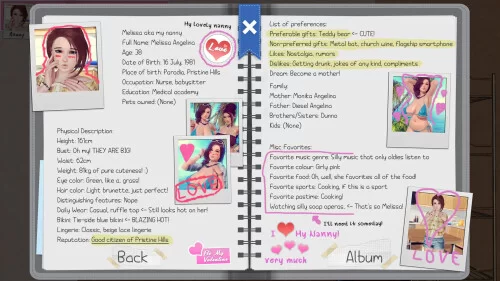 Nanny
My lovely nanny
Melissa aka my nanny
Full Name: Melissa Angelina
Age: 38
Date of Birth: 16 July, 1981
Place of birth: Paradia, Pristine Hills
Occupation: Nurse, babysitter
Education: Medical academy
Pets owned: (None)
Love
Physical Description:
Height: 161cm
Bust: Oh my! THEY ARE BIG!
Waist: 62cm
Weight: 81kg of pure cuteness! :)
Eye color: Green, like a.. grass!
Hair color: Light brunette, just perfect!
Distinguishing features: Nope
Daily Wear: Casual, ruffle top <- Still looks hot on her!
Bikini: Tie-side blue bikini <- BLAZING HOT!
Lingerie: Classic, beige lace lingerie
Reputation: Good citizen of Pristine Hills
LOVE
Be My
Valentine
Back
List of preferences:
Preferable gifts: Teddy bear <- CUTE!
Non-preferred gifts: Metal bat, church wine, flagship smartphone
Likes: Nostalgia, rumors
Dislikes: Getting drunk, jokes of any kind, compliments
Dream: Become a mother!
Family:
Mother: Monika Angelina
Father: Diesel Angelina
Brothers/Sisters: Dunno
Kids: (None)
Misc Favorites:
Favorite music genre: Silly music that only oldies listen to
Favorite colour: Girly pink
Favorite food: Oh, well, she favorites all of the food!
Favorite sports: Cooking, if this is a sport
Favorite pastime: Cooking!
Watching silly soap operas. <- That's so Melissa!
I'll need it someday!
I My Nanny!
Very much
Album
LOVE